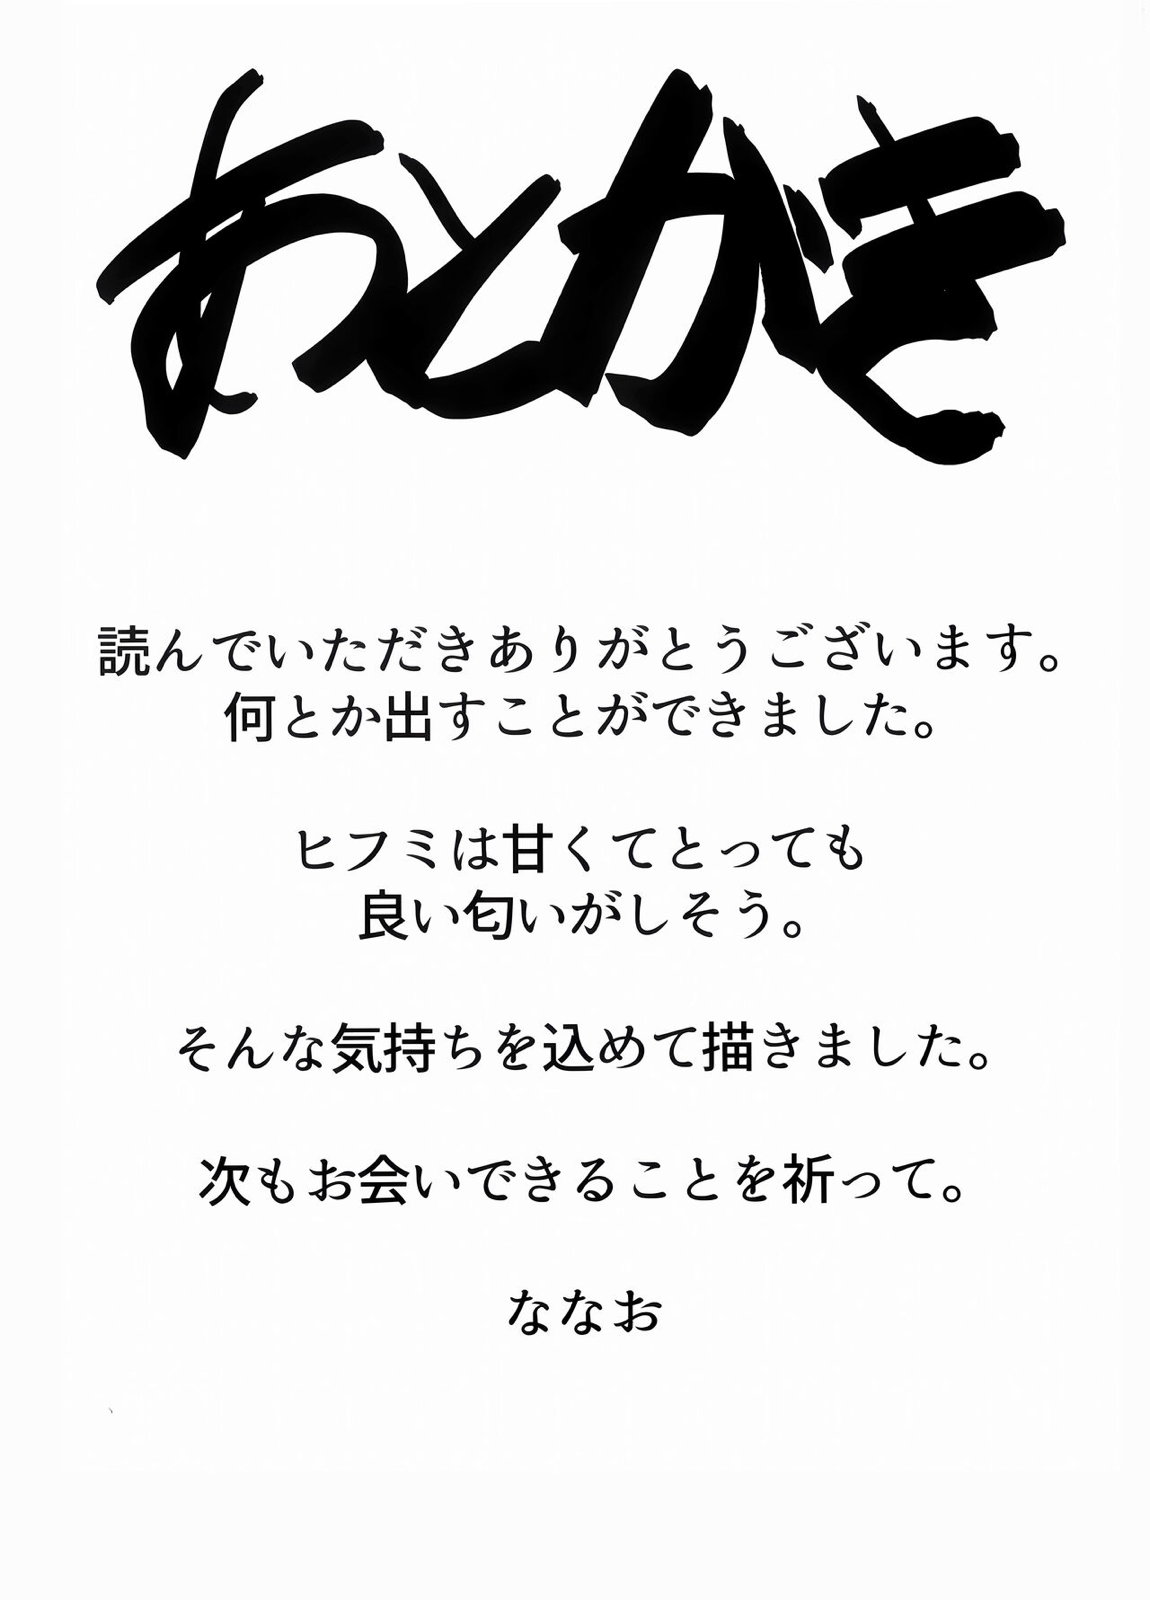 あとがき
読んでいただきありがとうございます。
何とか出すことができました。
ヒフミは甘くてとっても
良い匂いがしそう。
そんな気持ちを込めて描きました。
次もお会いできることを祈って。
ななお